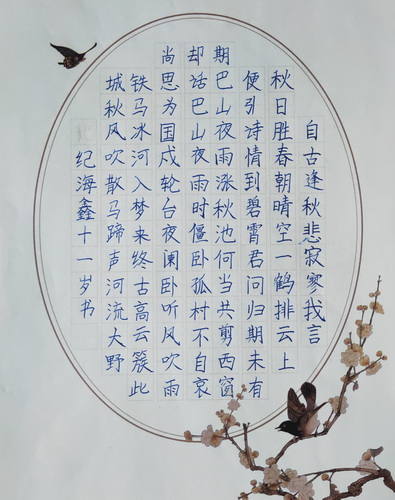 自古逢秋悲寂寥我言
秋日胜春朝晴空一鹤排云上
便引诗情到碧霄君问归期未有
期巴山夜雨涨秋池何当共剪西窗
却话巴山夜雨时僵卧孤村不自哀
尚思为国戍轮台夜阑卧听风吹雨
铁马冰河入梦来终古高云簇此
城秋风吹散马蹄声河流大野
纪海鑫十一岁书